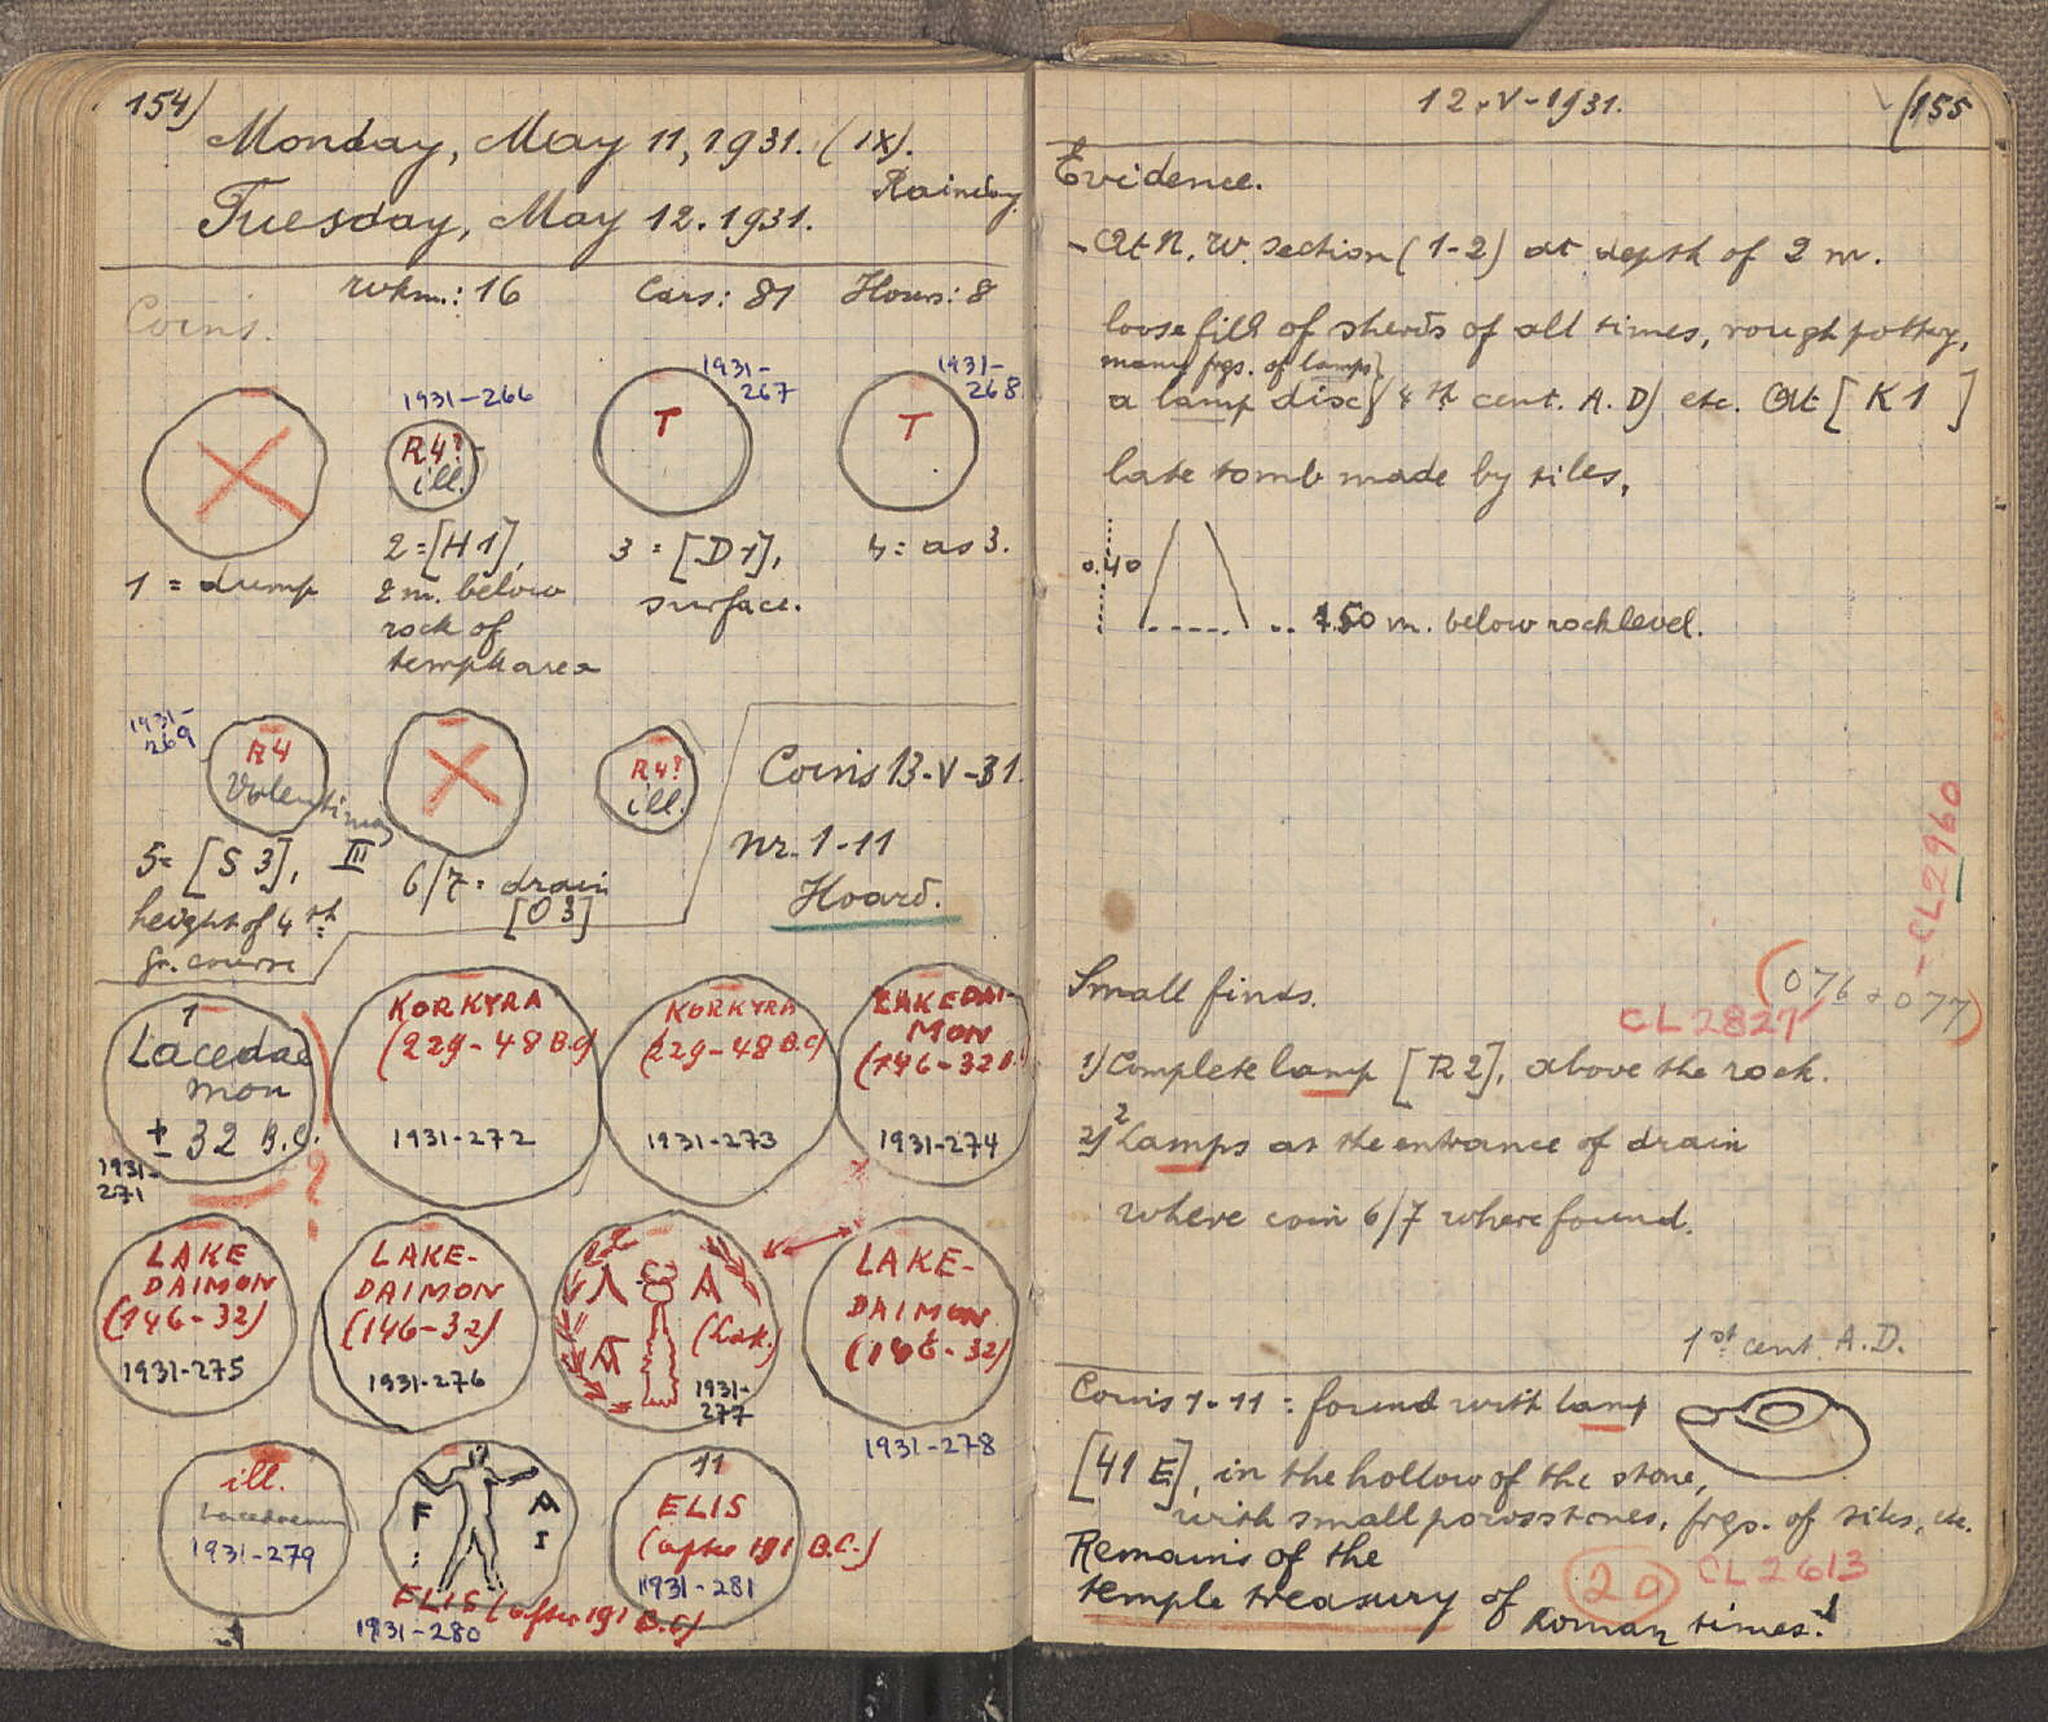 154)
Monday, May 11, 1931. (IX).
Rainday
Tuesday, May 12. 1931.
wkm.: 16 Cars: 81 Hours: 8
Coins.
1931-266
1931-
267
1931-
268
R4?
ill.
T
T
1 = dump
2 = [H1],
2 m. below
rock of
temple area
3 = [D1],
surface.
4 = as 3.
1931-
269
R4
Valentinian
III
5 = [S3],
height of 4th
gr. course
R4?
ill.
6/7 = drain
[O3]
Coins 13-V-31.
nr. 1-11
Hoard.
1
Lacedae
mon
± 32 B.C.
?
1931-
271
KORKYRA
(229-48 B.C)
1931-272
KORKYRA
(229-48 B.C)
1931-273
LAKEDAI-
MON
(146-32 B.
1931-274
LAKE
DAIMON
(146-32)
1931-275
LAKE-
DAIMON
(146-32)
1931-276
Λ A
(Lak.)
1931-
277
LAKE-
DAIMON
(146-32)
1931-278
ill.
Lacedaemon
1931-279
F A
I
ELIS (after 191 B.C)
1931-280
11
ELIS
(after 191 B.C.)
1931-281
12-V-1931.
(155
Evidence.
- At N.W. section (1-2) at depth of 2 m.
loose fill of sherds of all times, rough pottery,
many frgs. of lamps,
a lamp disc (4th cent. A.D) etc. At [K1]
late tomb made by tiles,
0.40
1.50 m. below rocklevel.
CL2960
Small finds.
(076 + 077)
CL 2827
1) Complete lamp [R2], above the rock.
2) 2 Lamps at the entrance of drain
where coin 6/7 where found.
1st cent. A.D.
Coins 1-11: found with lamp
[41 E], in the hollow of the stone,
with small poros stones, frgs. of tiles, etc.
Remains of the
temple treasury of Roman times!
20
CL 2613